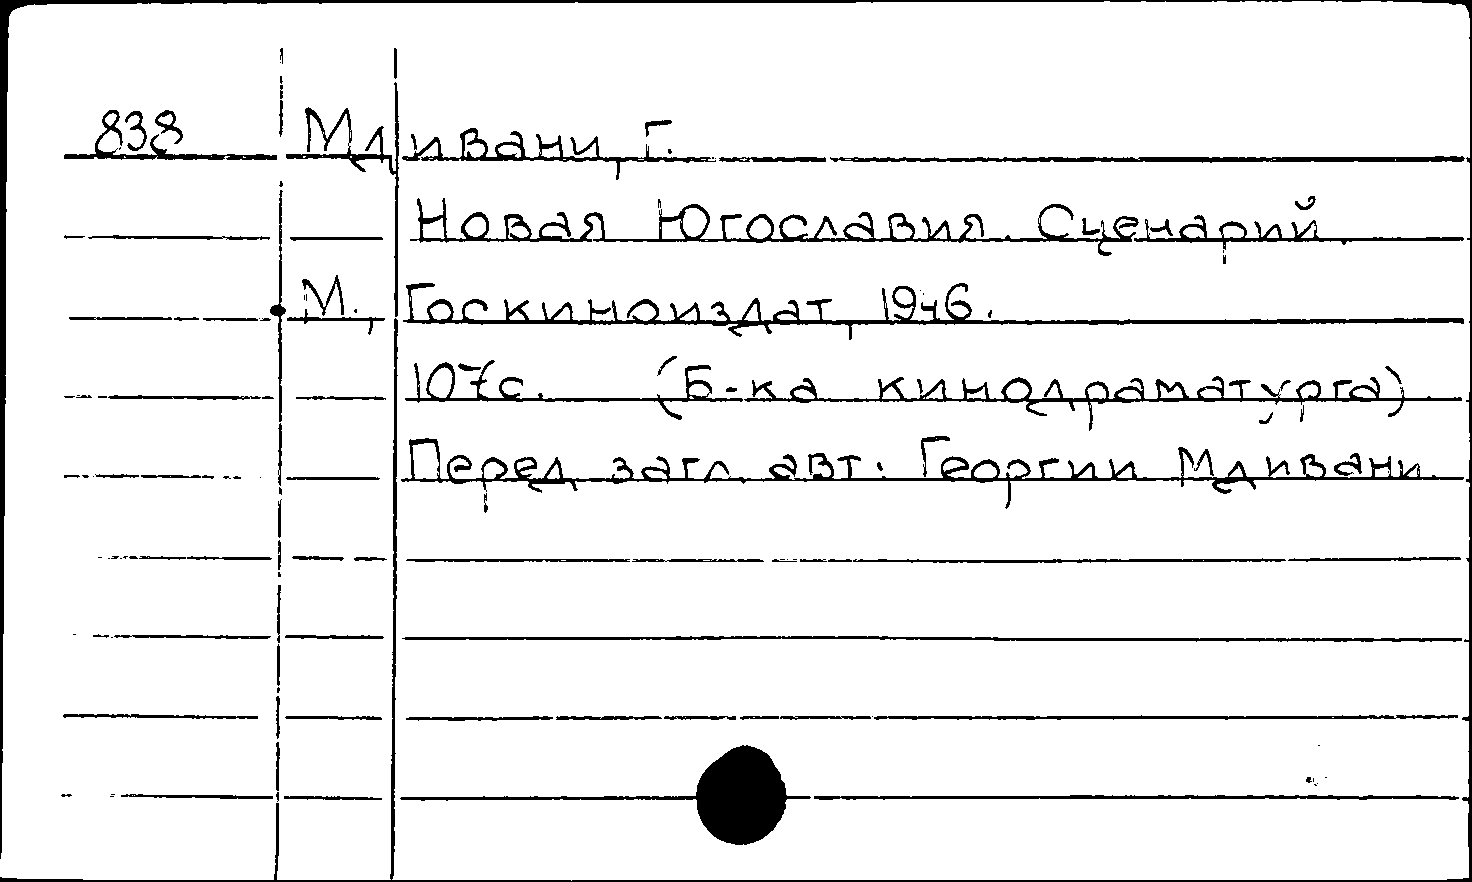 838 Мдивани, Г.
Новая Югославия. Сценарий.
М., Госкиноиздат, 1946.
107с. (Б-ка кинодраматурга)
Перед загл. авт.: Георгии Мдивани.